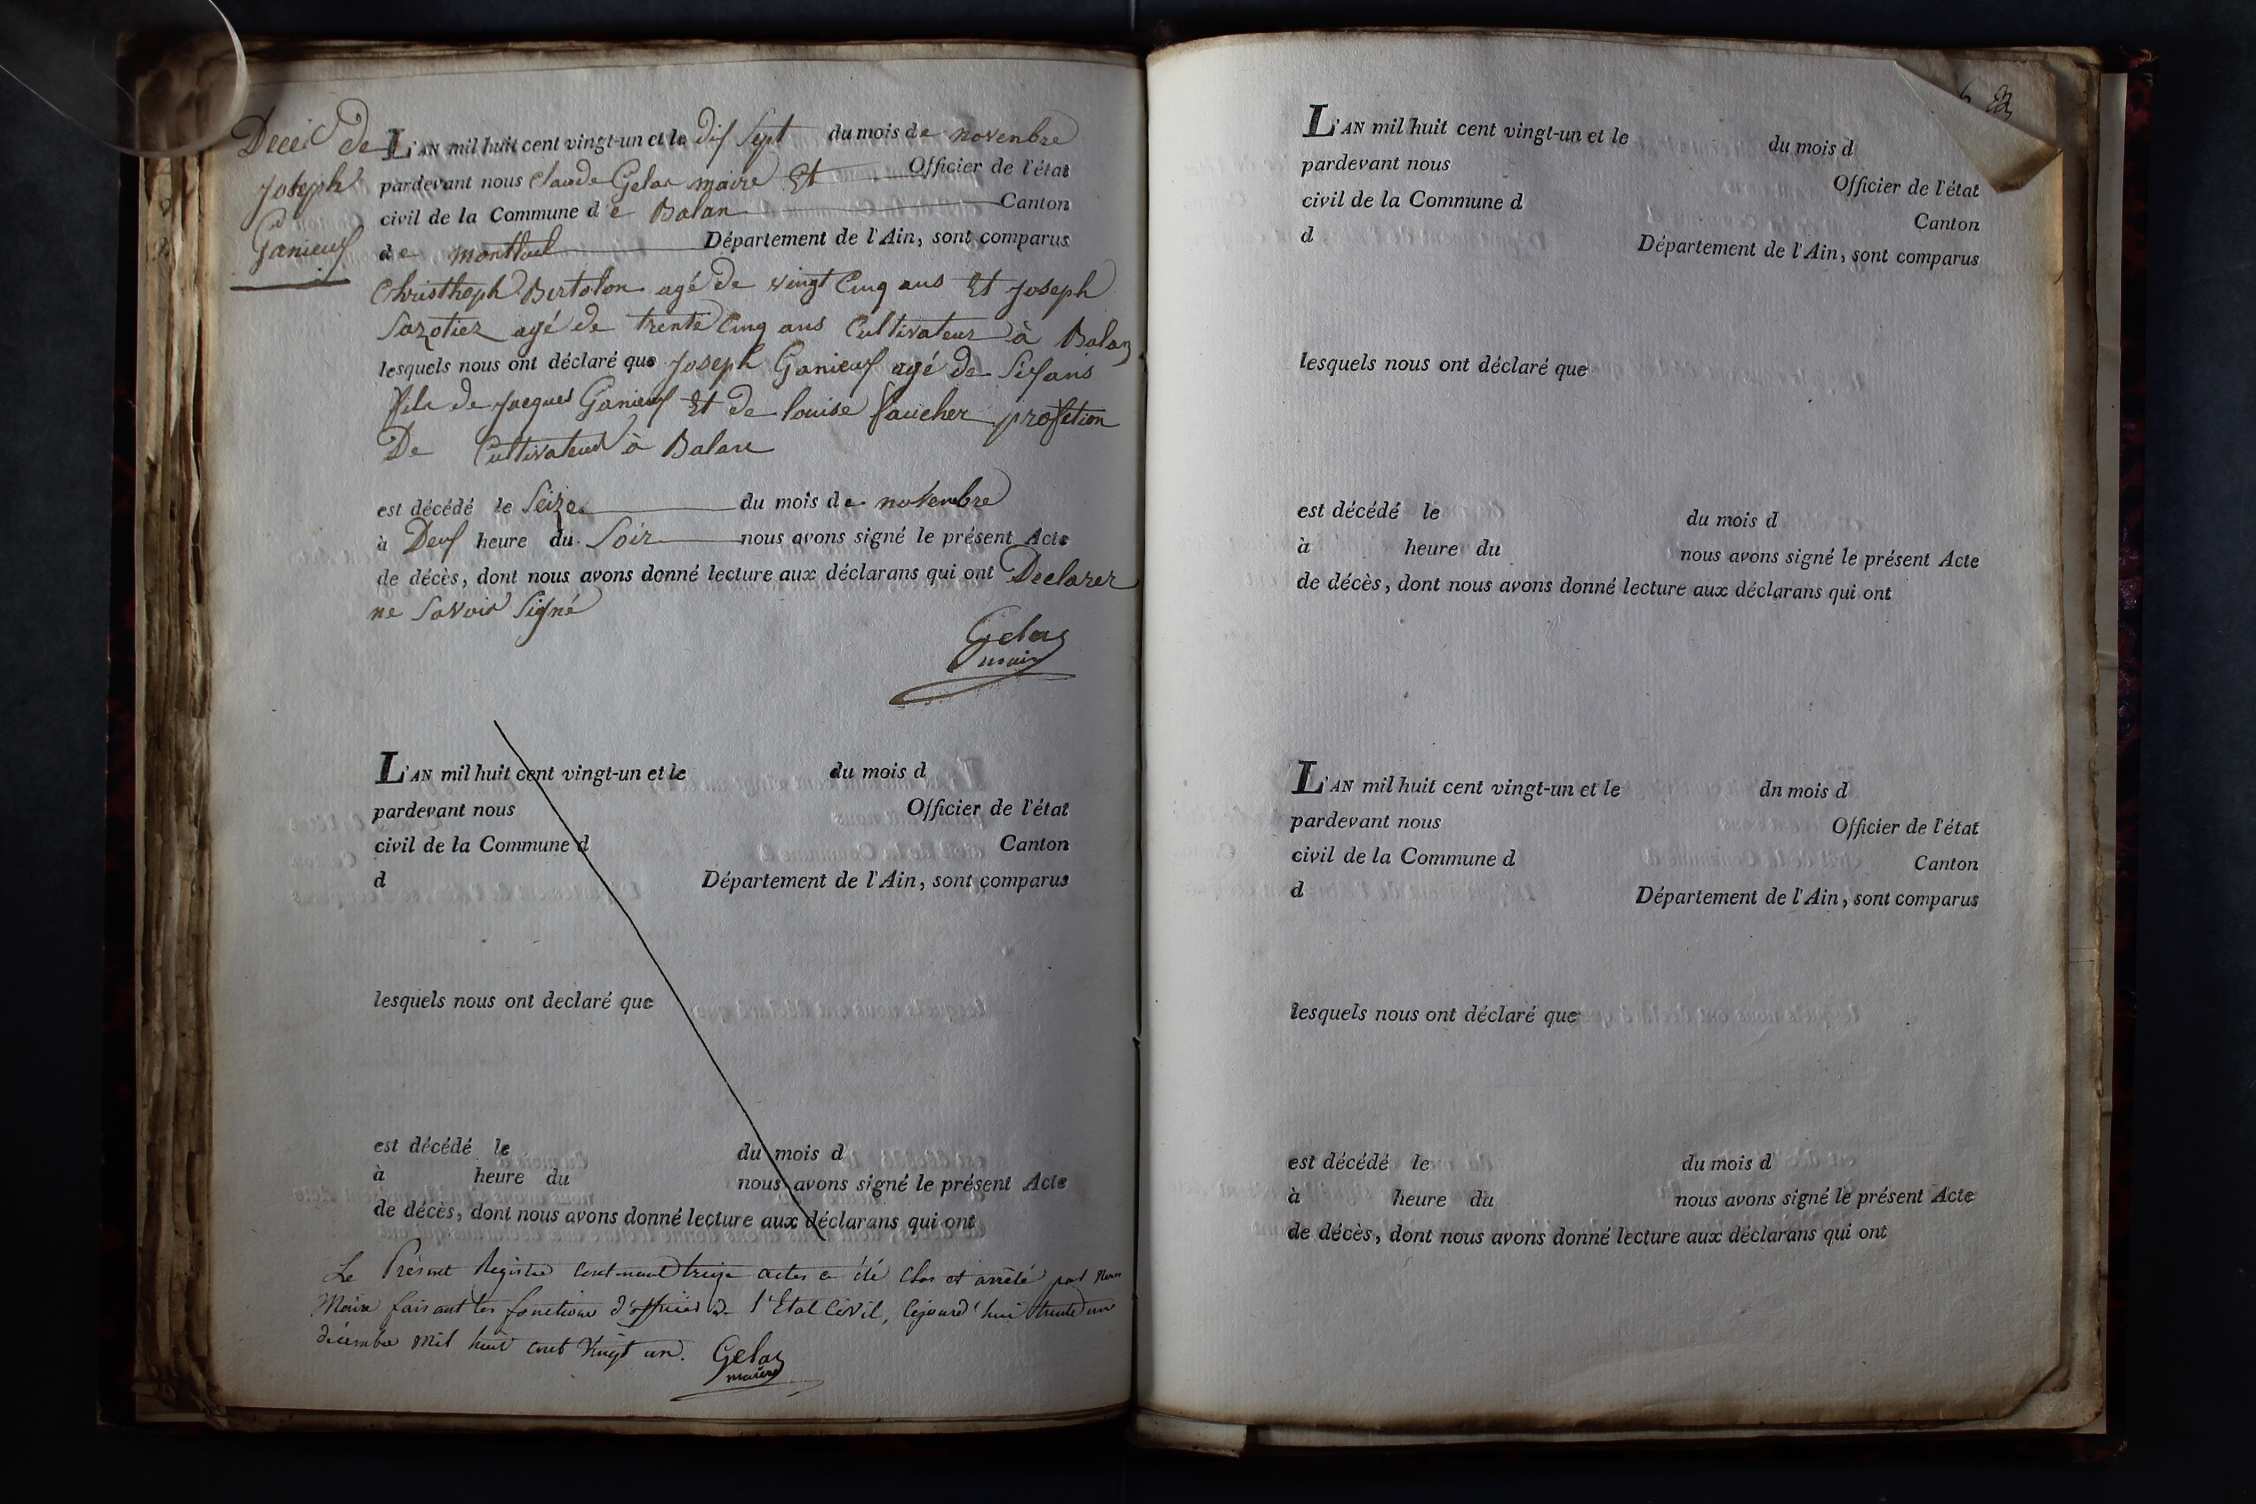 Décès de
Joseph
Ganieux
L'AN mil huit cent vingt-un et le dix Sept du mois de novenbre
pardevant nous Claude Gelas maire Et Officier de l'état
civil de la Commune de Balan Canton
de montluel Département de l'Ain, sont comparus
Christhoph Bertolon agé de vingt Cinq ans Et Joseph
agé de trente Cinq ans Cultivateur à Balan
lesquels nous ont déclaré que Joseph Ganieux agé de Six ans
fils de Jacques Ganieux Et de louise faucher profetion
De Cultivateur à Balan
est décédé le Seize du mois de novenbre
à Deux heure du Soir nous avons signé le présent Acte
de décès, dont nous avons donné lecture aux déclarans qui ont Declarer
ne Savoir Signé
Gelas
maire
L'AN mil huit cent vingt-un et le du mois d
pardevant nous Officier de l'état
civil de la Commune d Canton
d Département de l'Ain, sont comparus
lesquels nous ont declaré que
est décédé le du mois d
à heure du nous avons signé le présent Acte
de décès, dont nous avons donné lecture aux déclarans qui ont
Le Présent Registre contenant treize actes a été clos et arrêté par Nous
Maire faisant les fonctions d'officier de l'Etat Civil, cejourd'hui trente un
décembre mil huit cent vingt un. Gelas
maire
L'AN mil huit cent vingt-un et le du mois d
pardevant nous Officier de l'état
civil de la Commune d Canton
d Département de l'Ain, sont comparus
lesquels nous ont déclaré que
est décédé le du mois d
à heure du nous avons signé le présent Acte
de décès, dont nous avons donné lecture aux déclarans qui ont
L'AN mil huit cent vingt-un et le dn mois d
pardevant nous Officier de l'état
civil de la Commune d Canton
d Département de l'Ain, sont comparus
lesquels nous ont déclaré que
est décédé le du mois d
à heure du nous avons signé le présent Acte
de décès, dont nous avons donné lecture aux déclarans qui ont